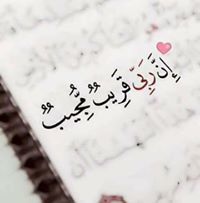 إِنَّ رَبِّىۡ قَرِيۡبٌ مُّجِيۡبٌ